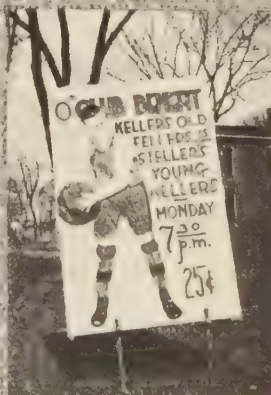 KELLERS OLD
FELLERS VS
STELLERS
YOUNG
KELLERS
MONDAY
7 30 p.m.
25¢